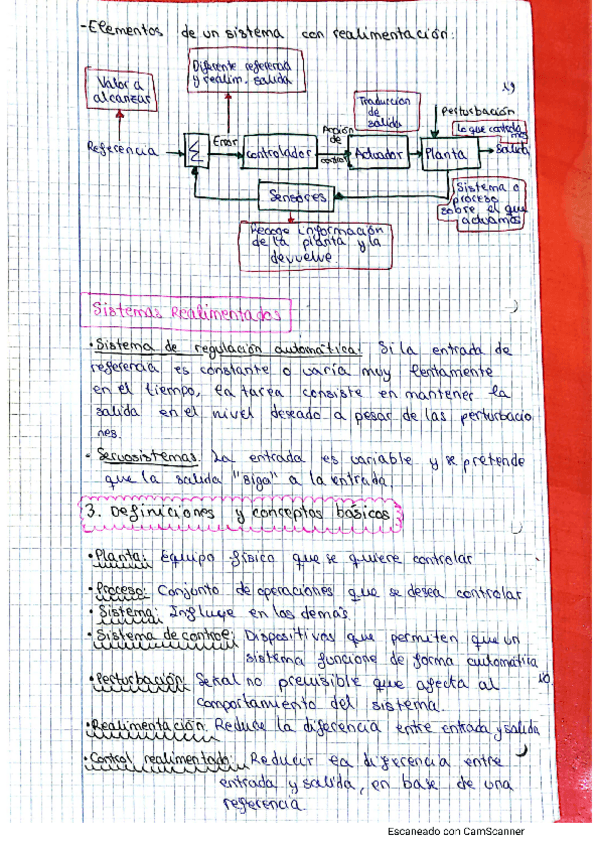 -Elementos de un sistema con realimentación:
Diferente referencia
y realim. salida
Valor a
alcanzar
Traducción
de
salida
Perturbación
lo que controla
Referencia
Σ
Error
Controlador
Acción
de
control
Actuador
Planta
Salida
Sensores
Sistema o
proceso
sobre el que
actuamos
Recoge información
de la planta y la
devuelve.
Sistemas Realimentados
·Sistema de regulación automática: Si la entrada de
referencia es constante o varía muy lentamente
en el tiempo, la tarea consiste en mantener la
salida en el nivel deseado a pesar de las perturbacio
nes.
· Servosistemas. La entrada es variable y se pretende
que la salida "siga" a la entrada.
3. Definiciones y conceptos básicos
·Planta: Equipo físico que se quiere controlar
·Proceso: Conjunto de operaciones que se desea controlar
·Sistema: Influye en los demás
·Sistema de control: Dispositivos que permiten que un
sistema funcione de forma automática
·Perturbación: Señal no previsible que afecta al
comportamiento del sistema.
·Realimentación: Reduce la diferencia entre entrada y salida
·Control realimentado: Reducir la diferencia entre
entrada y salida, en base de una
referencia.
Escaneado con CamScanner